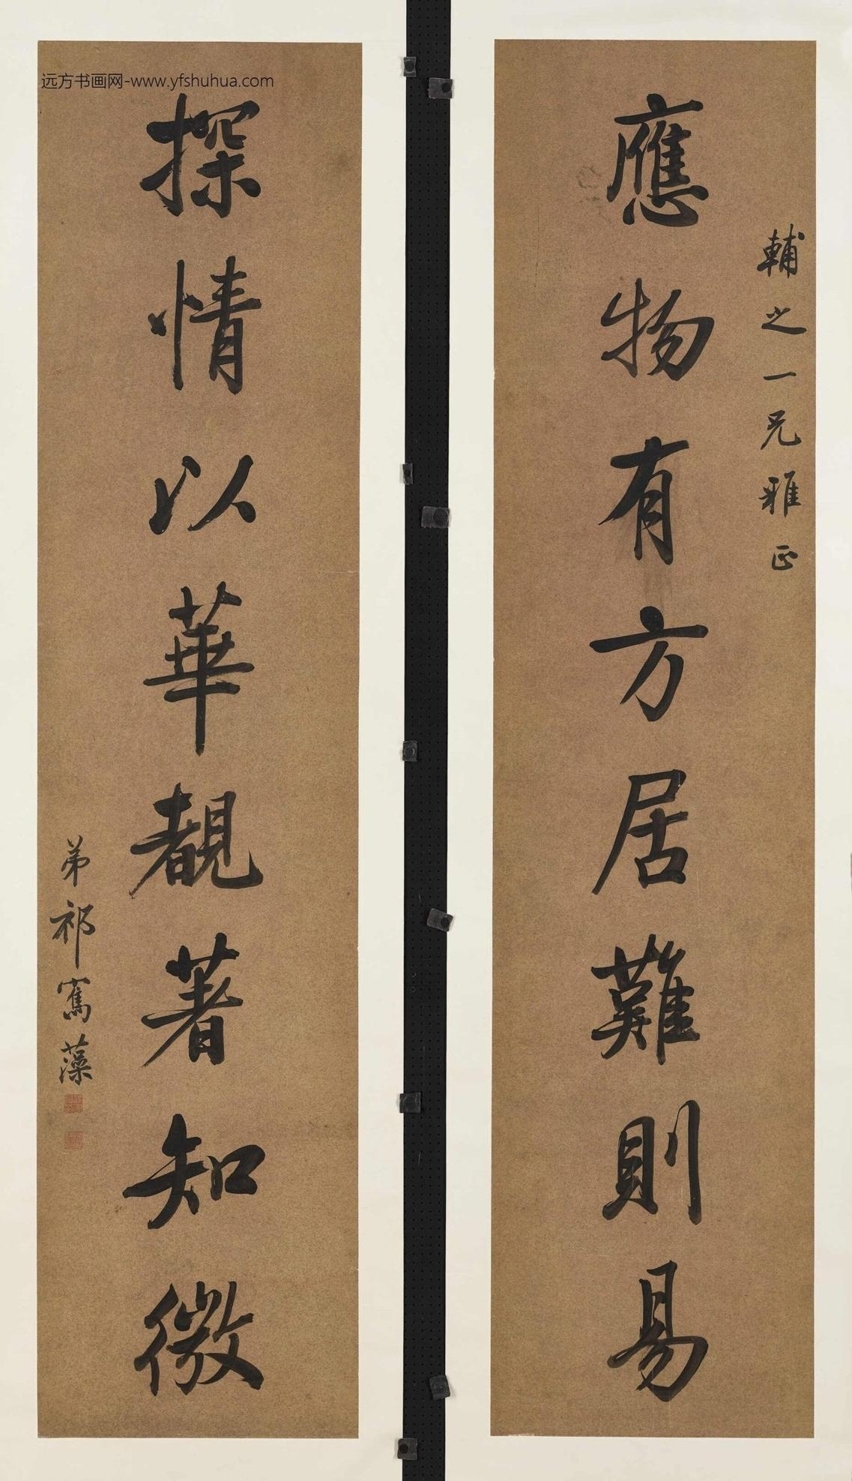 輔之一兄雅正
應物有方居難則易
探情以華覩著知微
弟祁寯藻
远方书画网-www.yfshuhua.com